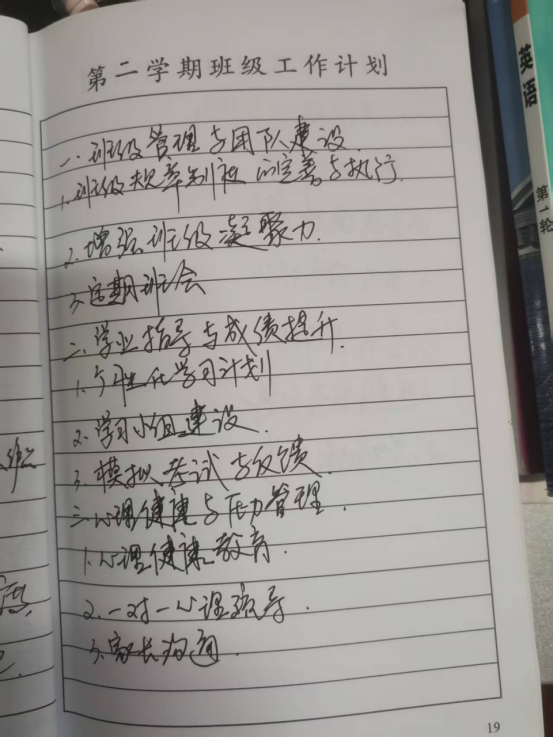 第二学期班级工作计划
一、班级管理与团队建设.
1.班级规章制度的完善与执行.
2.增强班级凝聚力.
3.定期班会
二、学业指导与成绩提升.
1.个性化学习计划
2.学习小组建设.
3.模拟考试与反馈.
三.心理健康与压力管理.
1.心理健康教育.
2.一对一心理疏导.
3.家长沟通.
19
英语
第一轮